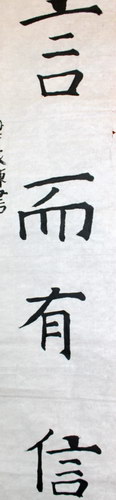 言而有信